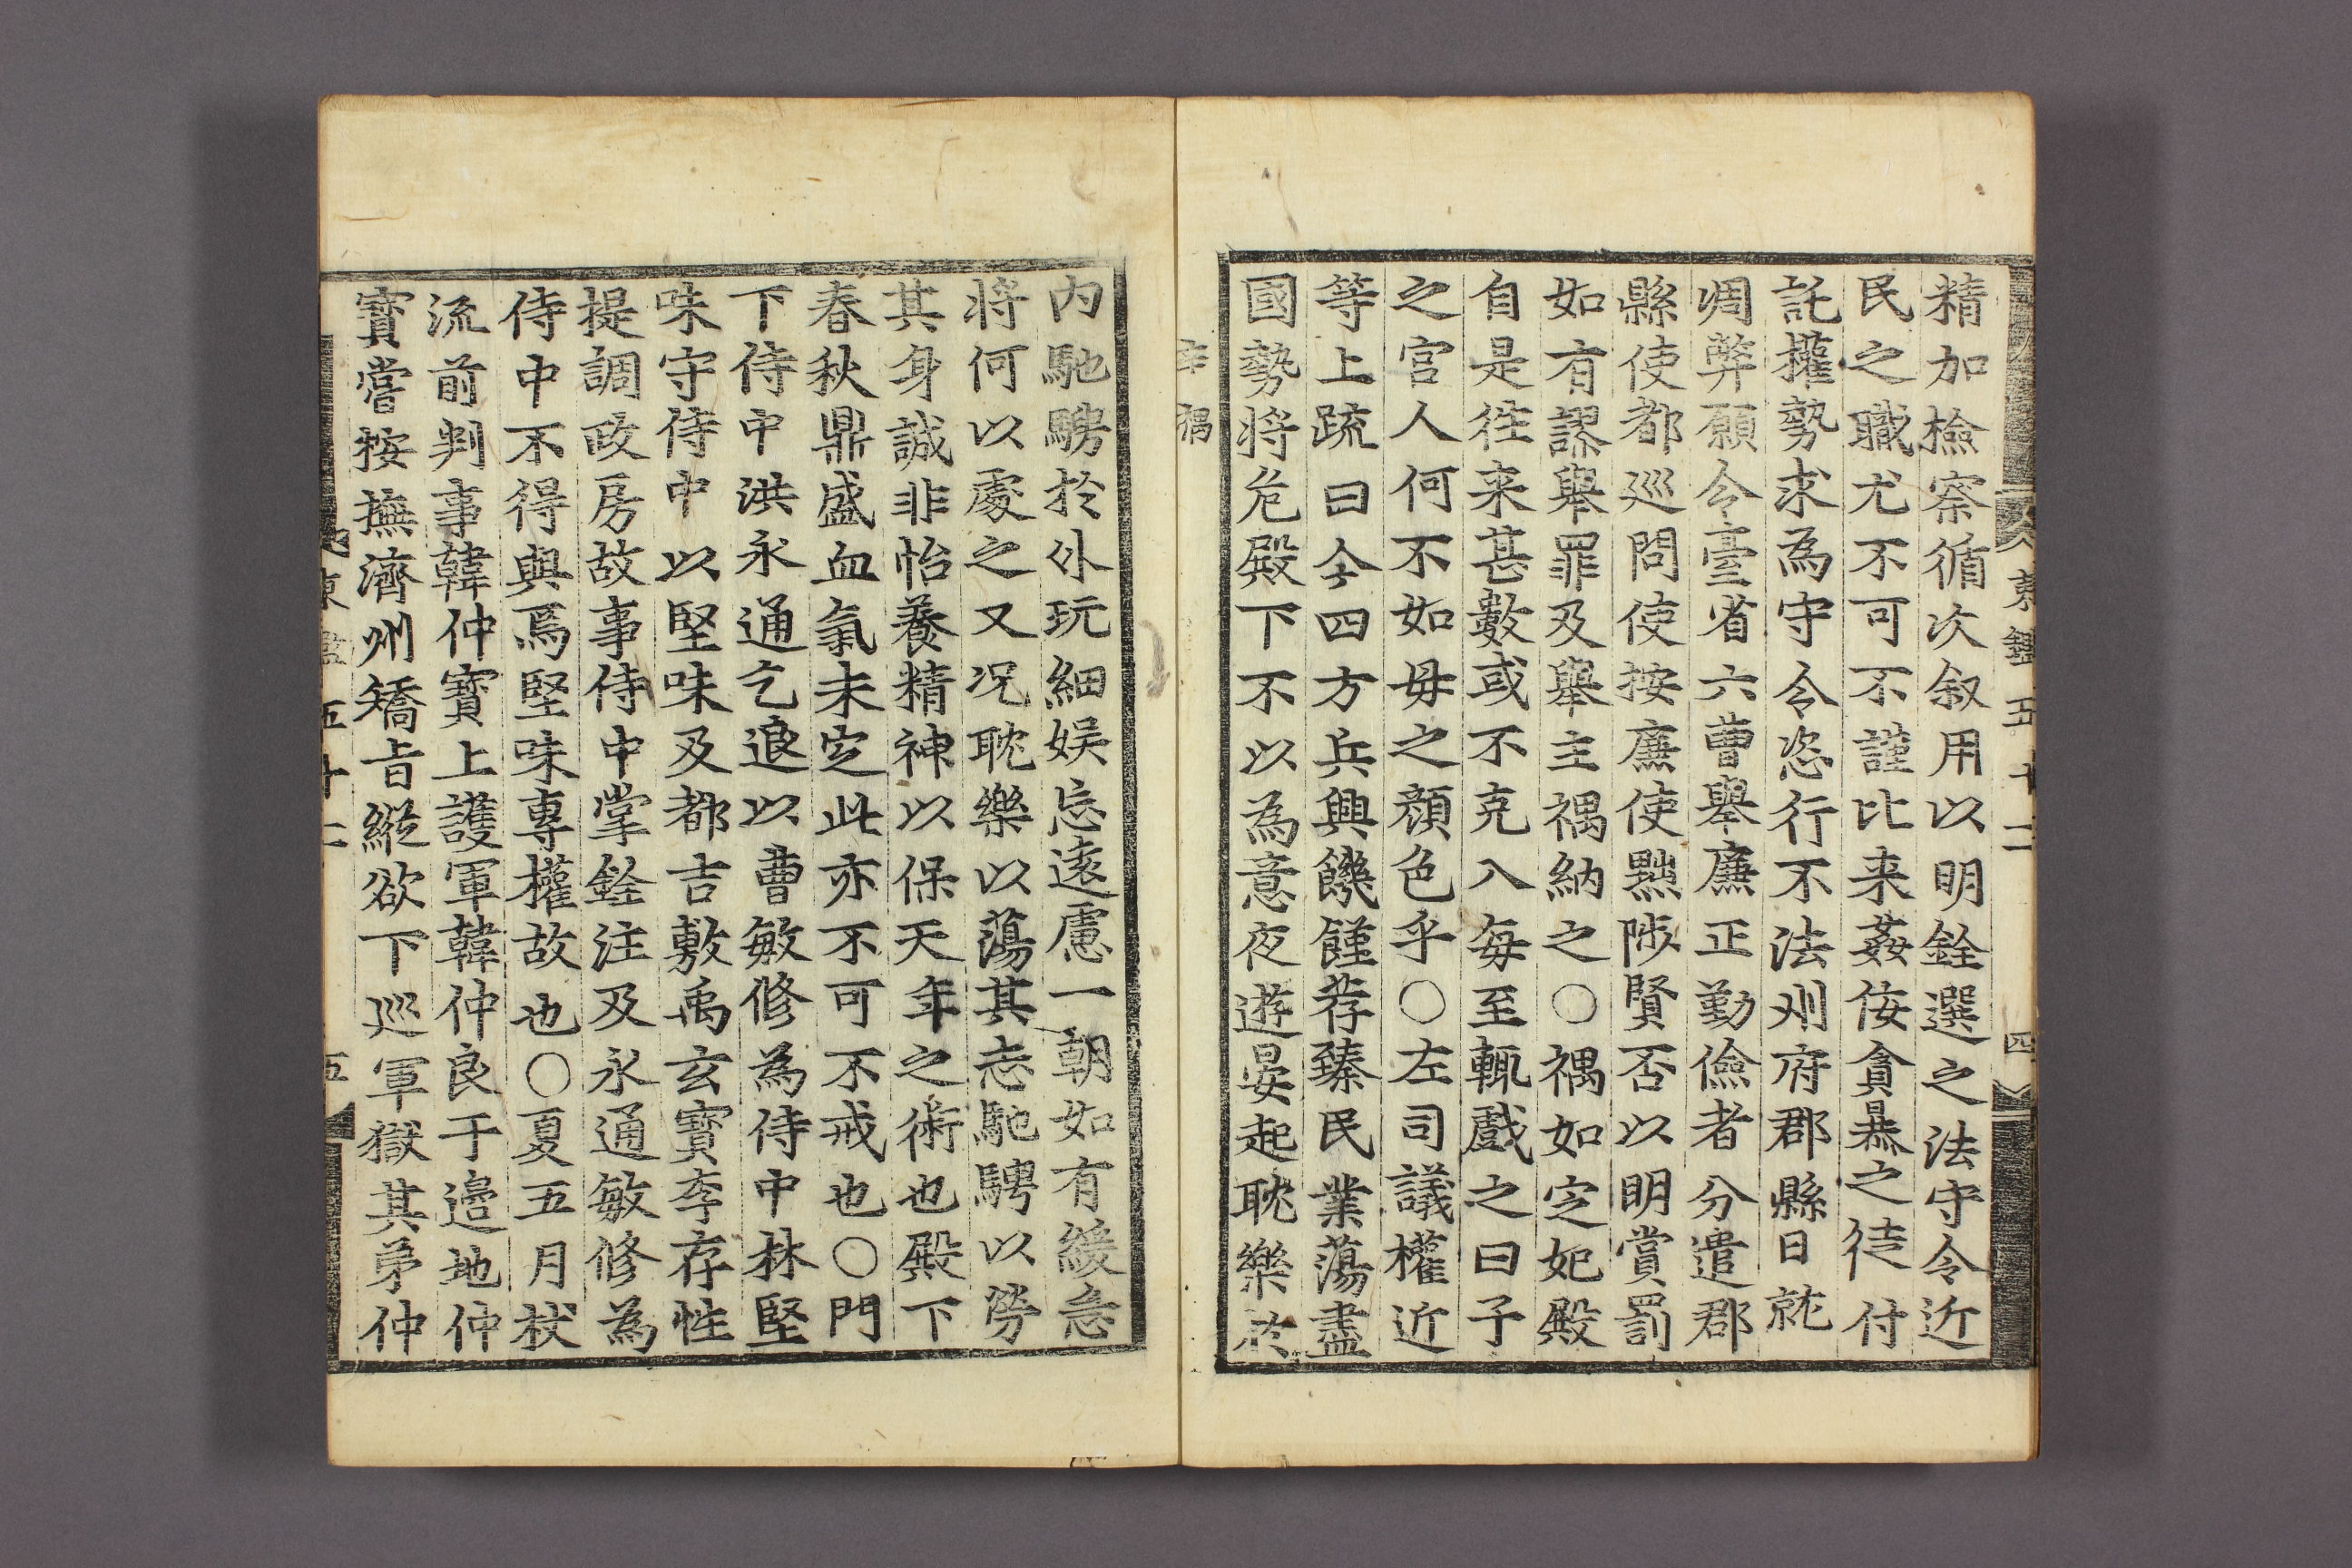 東鑑五十二 四
精加檢察循次叙用以明銓選之法守令近
民之職尤不可不謹比来姦侫貪暴之徒付
託權勢求為守令恣行不法刈府郡縣日就
凋弊願令臺省六曹擧廉正勤儉者分遣郡
縣使都巡問使按廉使黜陟賢否以明賞罰
如有謬擧罪及擧主禑納之○禑如定妃殿
自是徃来甚數或不克入每至輒戲之曰予
之宮人何不如毋之顔色乎○左司議權近
等上疏曰今四方兵興饑饉荐臻民業蕩盡
國勢将危殿下不以為意夜遊晏起耽樂於
辛禑
内馳騁扵外玩細娛忘遠慮一朝如有緩急
将何以處之又况耽樂以蕩其志馳騁以勞
其身誠非怡養精神以保天年之術也殿下
春秋鼎盛血氣未定此亦不可不戒也○門
下侍中洪永通乞退以曹敏修為侍中林堅
味守侍中以堅味及都吉敷禹玄寶李存性
提調政房故事侍中掌銓注及永通敏修為
侍中不得與焉堅味專權故也○夏五月杖
流前判事韓仲寶上護軍韓仲良于邉地仲
寶嘗按撫濟州矯旨縱欲下巡軍獄其弟仲
東鑑五十二 五